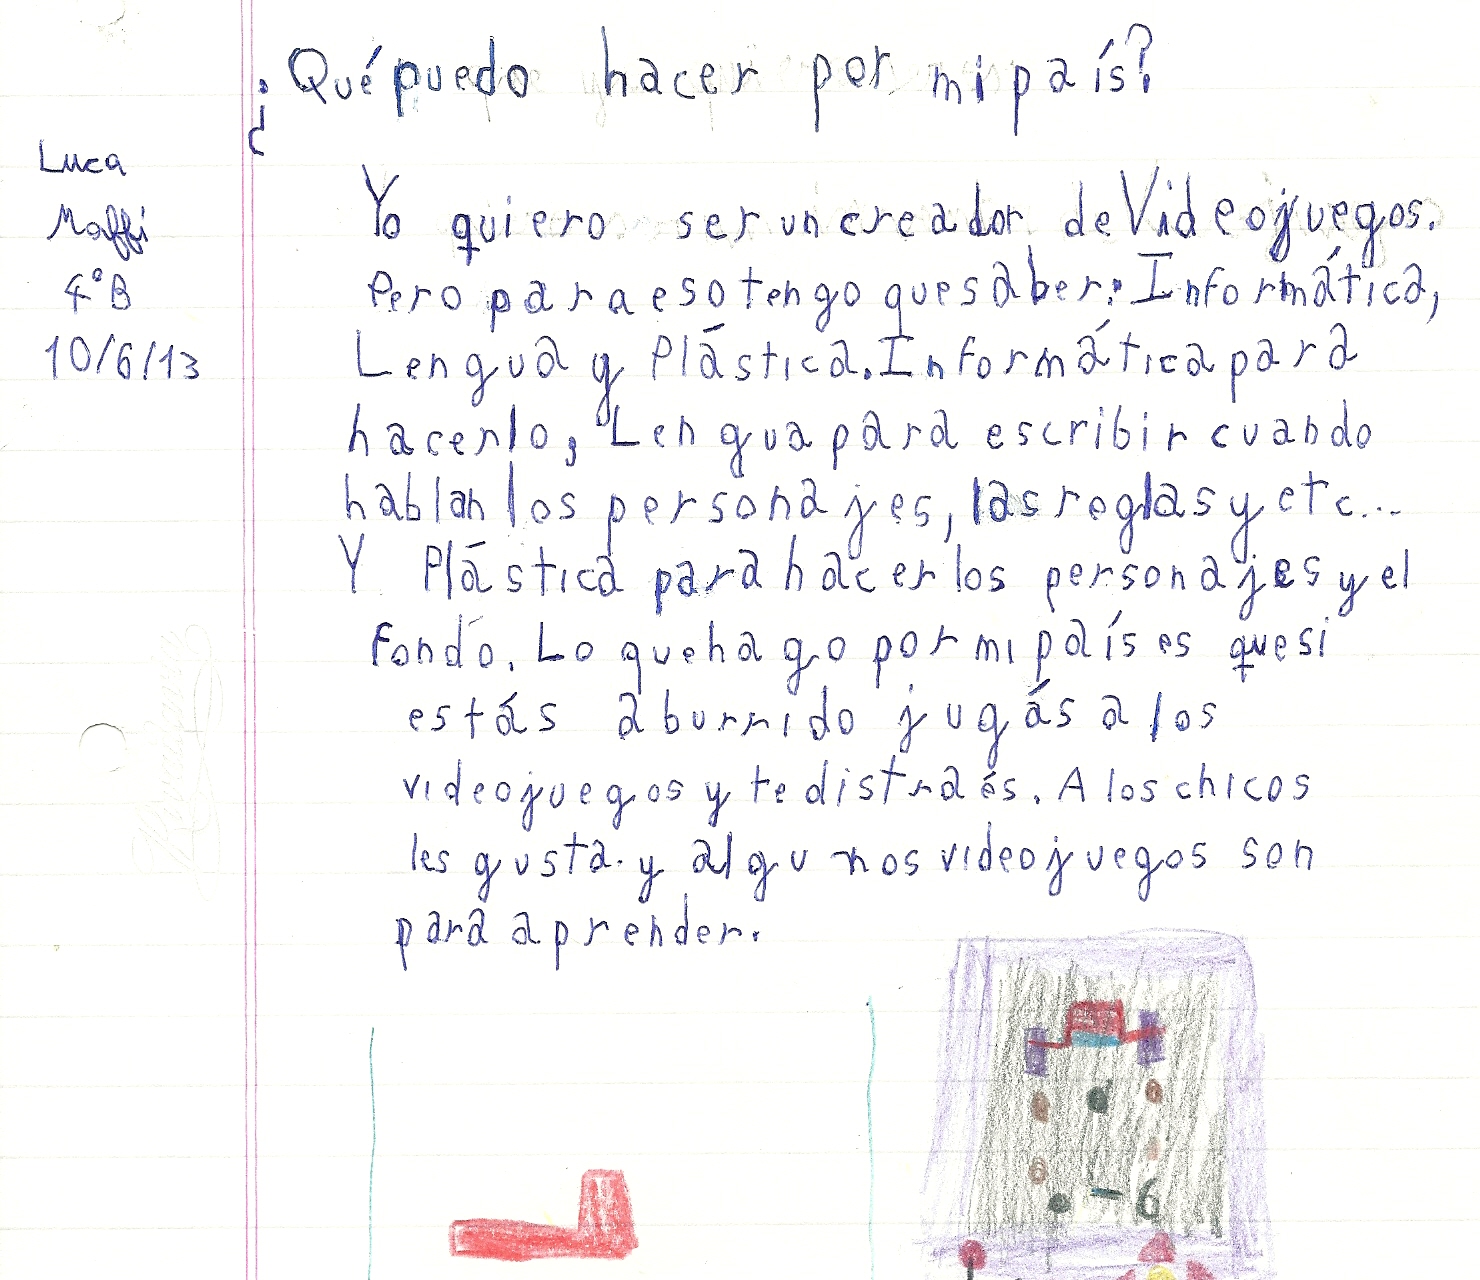 ¿Qué puedo hacer por mi país?
Luca
Maffi
4°B
10/6/13
Yo quiero ser un creador de Videojuegos.
Pero para eso tengo que saber: Informática,
Lengua y Plástica. Informática para
hacerlo, Lengua para escribir cuando
hablan los personajes, las reglas y etc...
Y Plástica para hacer los personajes y el
fondo. Lo que hago por mi país es que si
estás aburrido jugás a los
videojuegos y te distraés. A los chicos
les gusta. y algunos videojuegos son
para aprender.
- 6